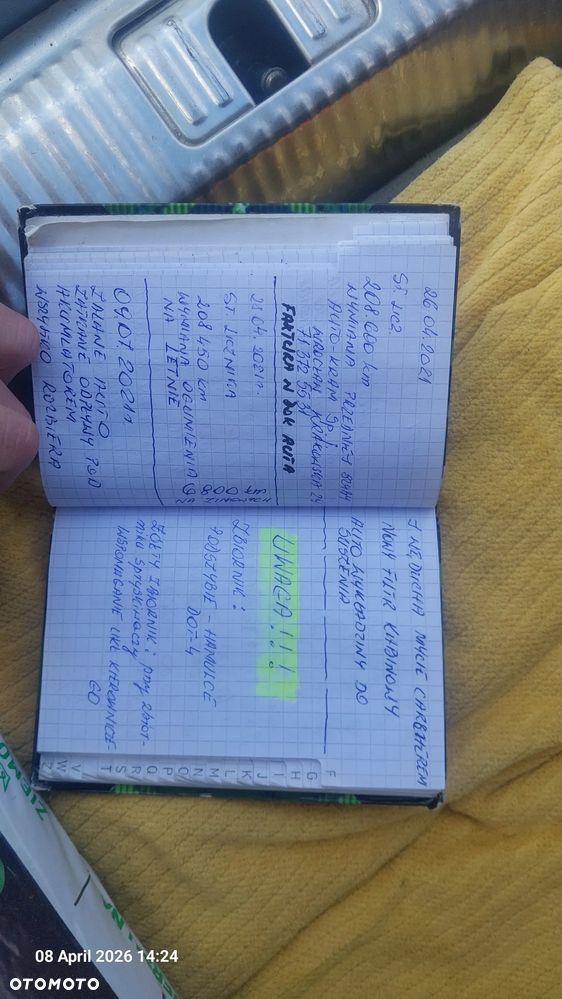 26.04.2021
St. licz.
208 600 km
WYMIANA PRZEDNIEJ SZYBY
AUTO-KRAM Sp. J.
WROCŁAW, KRAKOWSKA 24
FAKTURA W DOK AUTA
28.04.2021r.
ST LICZNIKA
208 450 km
WYMIANA OGUMIENIA
NA LETNIE
04.07.2021r
ZALANE AUTO
ZATKANE ODPŁYWY POD
AKUMULATOREM
WSZYSTKO ROZBIERA
MYCIE
NOWY FILTR KABINOWY
AUTO WYKŁADZINY DO
SUSZENIA
UWAGA!!!
ZBIORNIK:
PODSZYBIE - HAMULCE
DOT-4
ŻÓŁTY ZBIORNIK: przy zbior-
niku spryskiwaczy
WSPOMAGANIE UKŁ KIEROWNICZE-
GO
F
G
H
I
J
K
L
M
N
O
P
Q
R
S
T
V
W
Z
08 April 2026 14:24
OTOMOTO